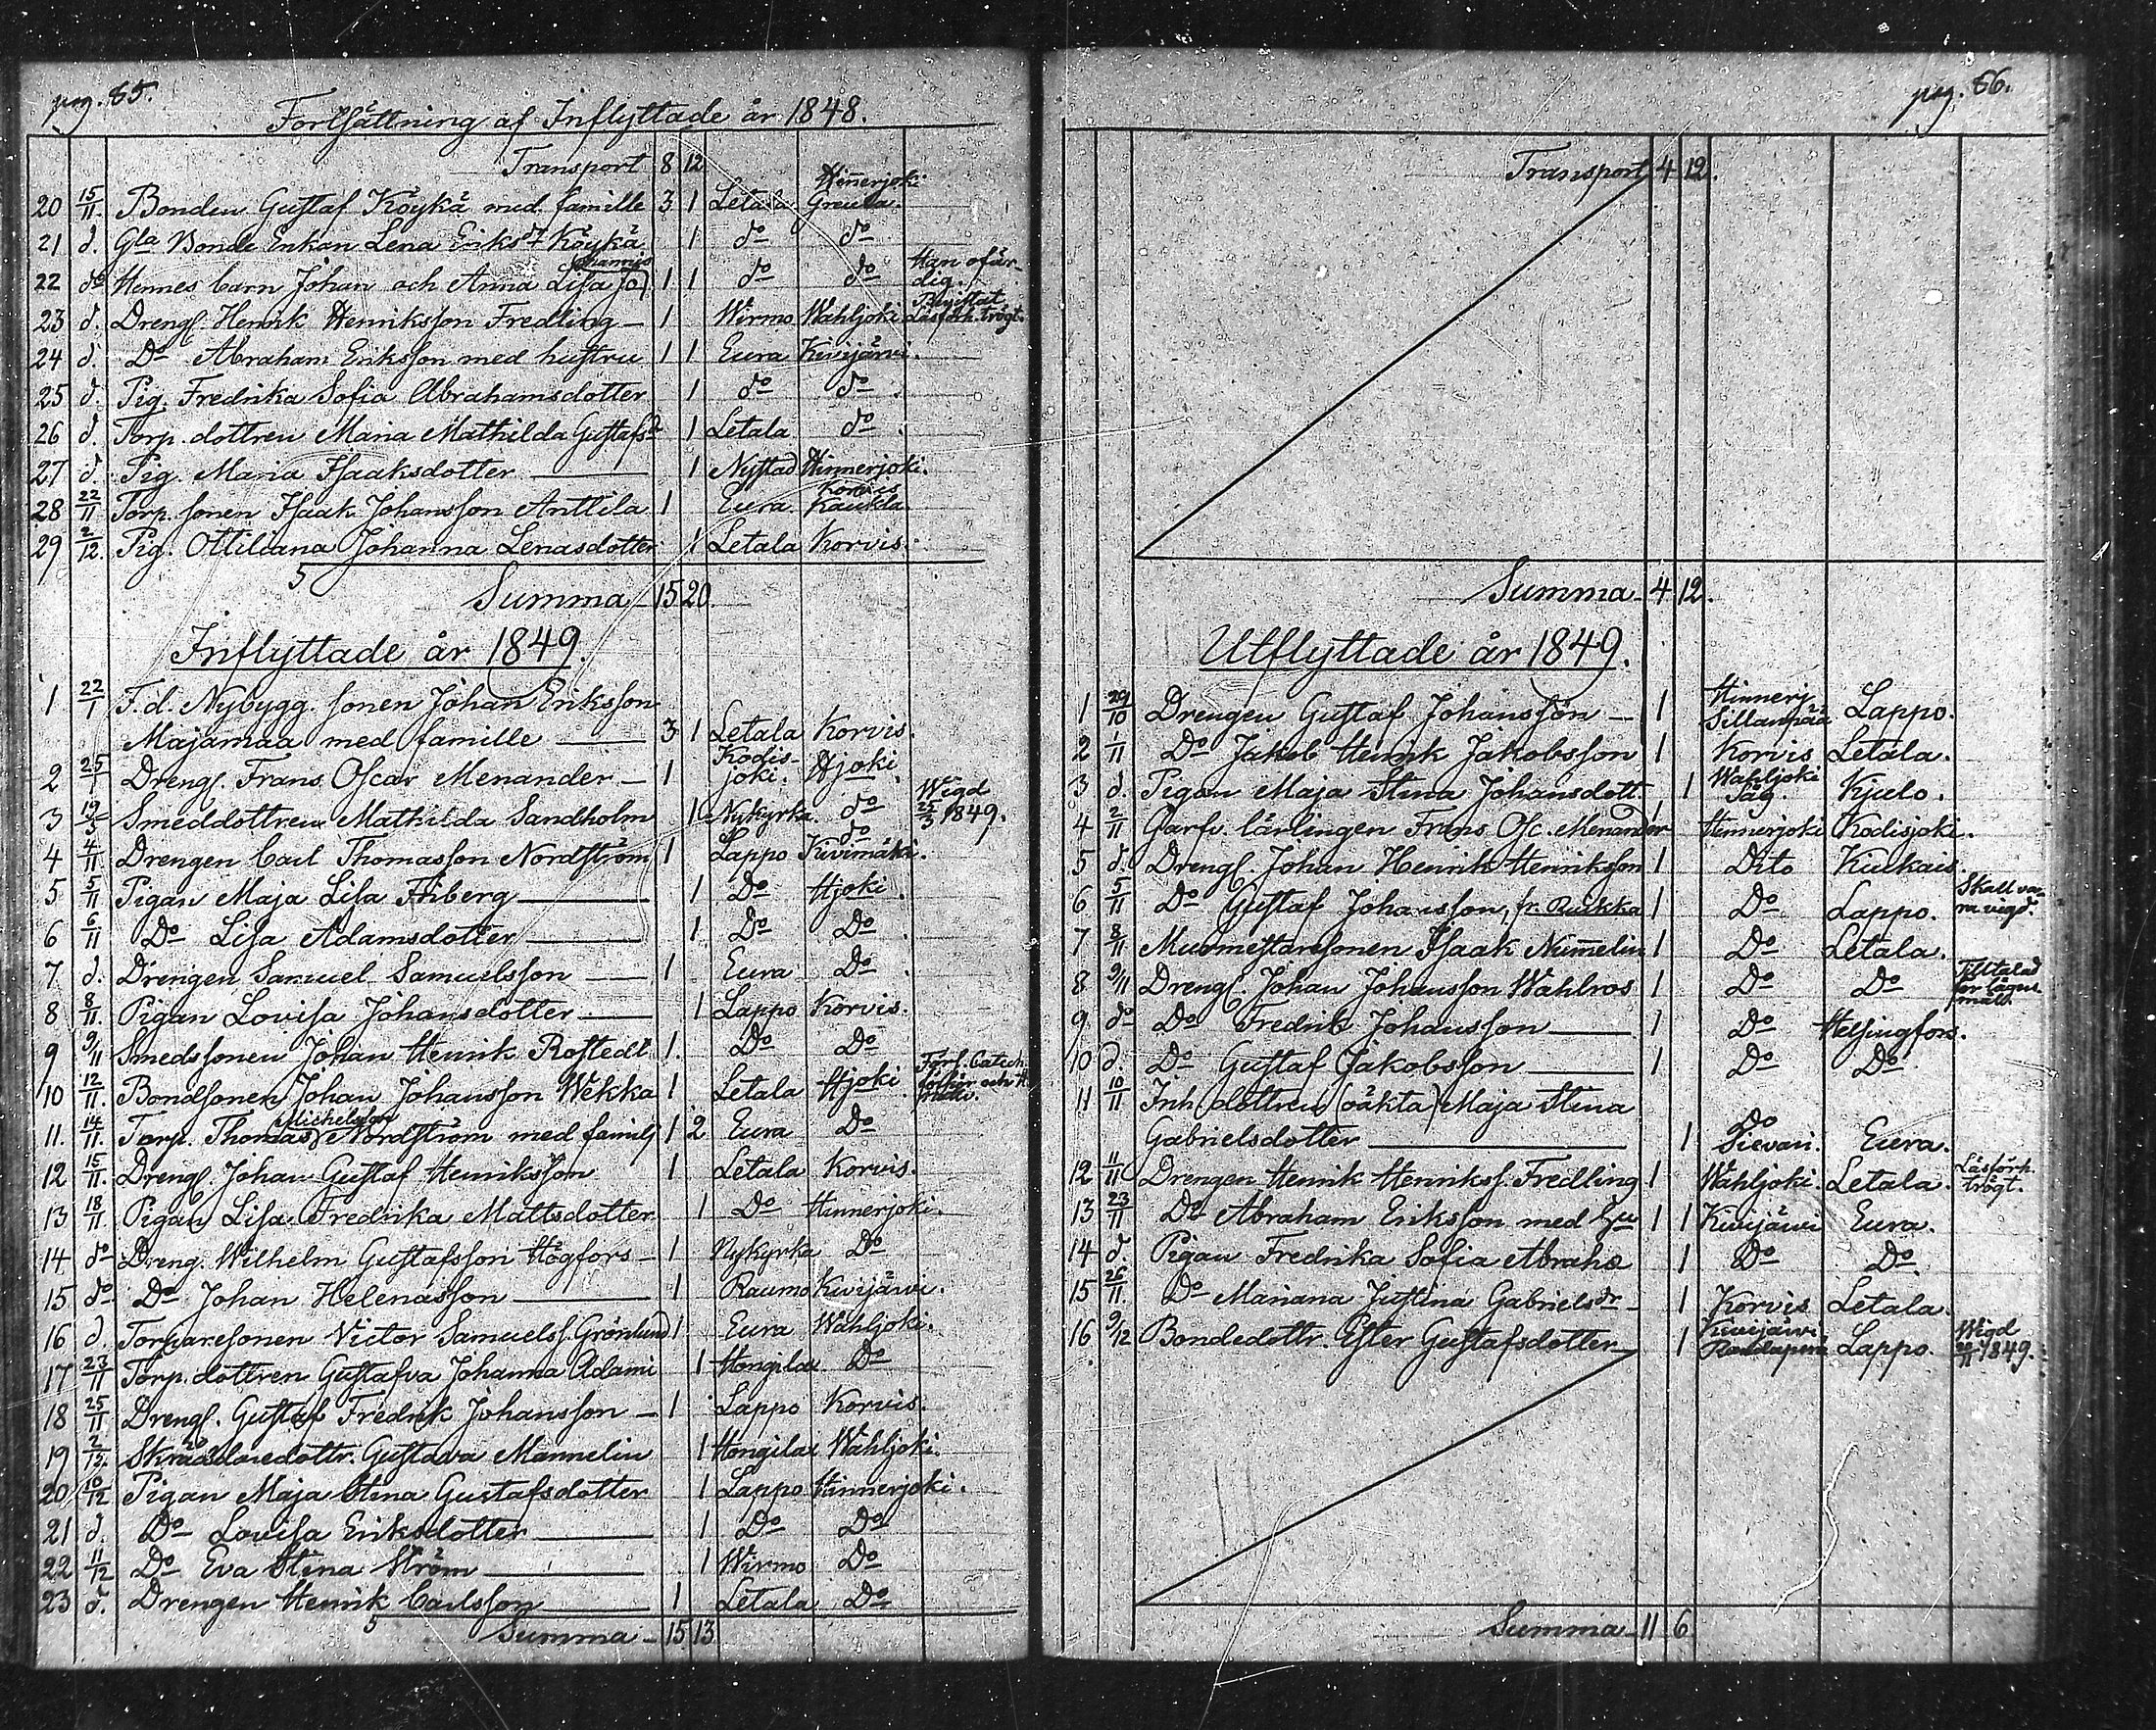 pag. 65.
Fortsättning af Inflyttade år 1848.
Transport 8 12
20 15/11. Bonden Gustaf Köykä med famille 3 1 Letala Hinnerjoki Greula.
21 d. Gla Bonde Enkan Lena Eriksdr Köykä 1 do do
22 do Hennes barn Johan och Anna Lisa Johannis 1 1 do do Han ofär-dig.
23 d. Drengs. Henrik Henriksson Fredling 1 Wirmo Wahljoki Bevistat Läsförh. trögt.
24 d. Do Abraham Eriksson med hustru 1 1 Eura Kivijärvi.
25 d. Pig. Fredrika Sofia Abrahamsdotter 1 do do.
26 d. Torp. dottren Maria Mathilda Gustafsd. 1 Letala do.
27 d. Pig. Maria Isaaksdotter 1 Nystad Hinnerjoki.
28 22/11 Torp. sonen Isaak Johansson Anttila 1 Eura Korvis Kaukla.
29 2/12. Pig. Ottiliana Johanna Lenasdotter 1 Letala Korvis.
5
Summa 15 20
Inflyttade år 1849.
1 22/1 F.d. Nybygg. sonen Johan Eriksson
Majamaa med famille 3 1 Letala Korvis.
2 25/1 Drengs. Frans Oscar Menander 1 Kodis-joki. Hjoki.
3 19/3 Smeddottren Mathilda Sandholm 1 Nykyrka. do Wigd 25/3 1849.
4 4/11 Drengen Carl Thomasson Nordström 1 Lappo do Kivimäki.
5 5/11 Pigan Maja Lisa Friberg 1 Do Hjoki.
6 6/11 Do Lisa Adamsdotter 1 Do Do.
7 d. Drengen Samuel Samuelsson 1 Eura Do.
8 8/11. Pigan Lovisa Johansdotter 1 Lappo Korvis.
9 9/11 Smedssonen Johan Henrik Rostedt 1. Do Do
10 12/11. Bondsonen Johan Johansson Wekka 1 Letala Hjoki. Förs. Catech. förhör och H.
11. 14/11. Torp. Thomas Michelsson Nordström med familj 1 2 Eura Do
12 15/11. Drengs. Johan Gustaf Henriksson 1 Letala Korvis.
13 18/11. Pigan Lisa Fredrika Mattsdotter 1 Do Hinnerjoki.
14 do Dreng. Wilhelm Gustafsson Högfors 1 Nykyrka Do
15 do. Do Johan Helenasson 1 Raumo Kivijärvi.
16 d. Torparesonen Victor Samuelss. Grönlund 1 Eura Wahljoki.
17 23/11 Torp. dottren Gustafva Johanna Adami 1 Hongilax Do
18 25/11 Drengs. Gustaf Fredrik Johansson 1 Lappo Korvis.
19 2/12. Skräddaredottr. Gustava Mannelin 1 Hongilax Wahljoki.
20 10/12 Pigan Maja Stina Gustafsdotter 1 Lappo Hinnerjoki.
21 d. Do Lovisa Eriksdotter 1 Do Do
22 11/12 Do Eva Stina Ström 1 Wirmo Do
23 d. Drengen Henrik Carlsson 1 Letala Do
5
Summa 15 13
pag. 66.
Transport 4 12.
Summa 4 12.
Utflyttade år 1849.
1 29/10 Drengen Gustaf Johansson 1 Hinnerj. Sillanpää Lappo.
2 1/11 Do Jakob Henrik Jakobsson 1 Korvis Letala.
3 d. Pigan Maja Stina Johansdott. 1 Wahljoki Såg. Kjulo.
4 2/11 Garfv. lärlingen Frans Osc. Menander 1 Hinnerjoki Kodisjoki.
5 d. Drengs. Johan Henrik Henriksson 1 Dito Kiukais.
6 5/11 Do Gustaf Johansson, fr. Ruskka 1 Do Lappo. Skall va-ra vigd.
7 8/11 Murmestaresonen Isaak Num̄elin 1 Do Letala.
8 9/11 Drengs. Johan Johansson Wahlros 1 Do Do Tilltalad för lägers-mål.
9 do Do Fredrik Johansson 1 Do Helsingfors.
10 d. Do Gustaf Jakobsson 1 Do Do.
11 10/11 Inh dottren (oäkta) Maja Stina
Gabrielsdotter 1 Do Sievari. Eura.
12 11/11 Drengen Henrik Henrikss. Fredling 1 Wahljoki. Letala. Läsförh. trögt.
13 23/11 Do Abraham Eriksson med hu 1 1 Kivijärvi Eura.
14 d. Pigan Fredrika Sofia Abrahæ 1 Do Do.
15 26/11. Do Mariana Justina Gabrielsdr 1 Korvis Letala.
16 9/12 Bondedottr. Ester Gustafsdotter 1 Kivijärvi Lappo. Wigd 20/11 1849.
Summa 11 6